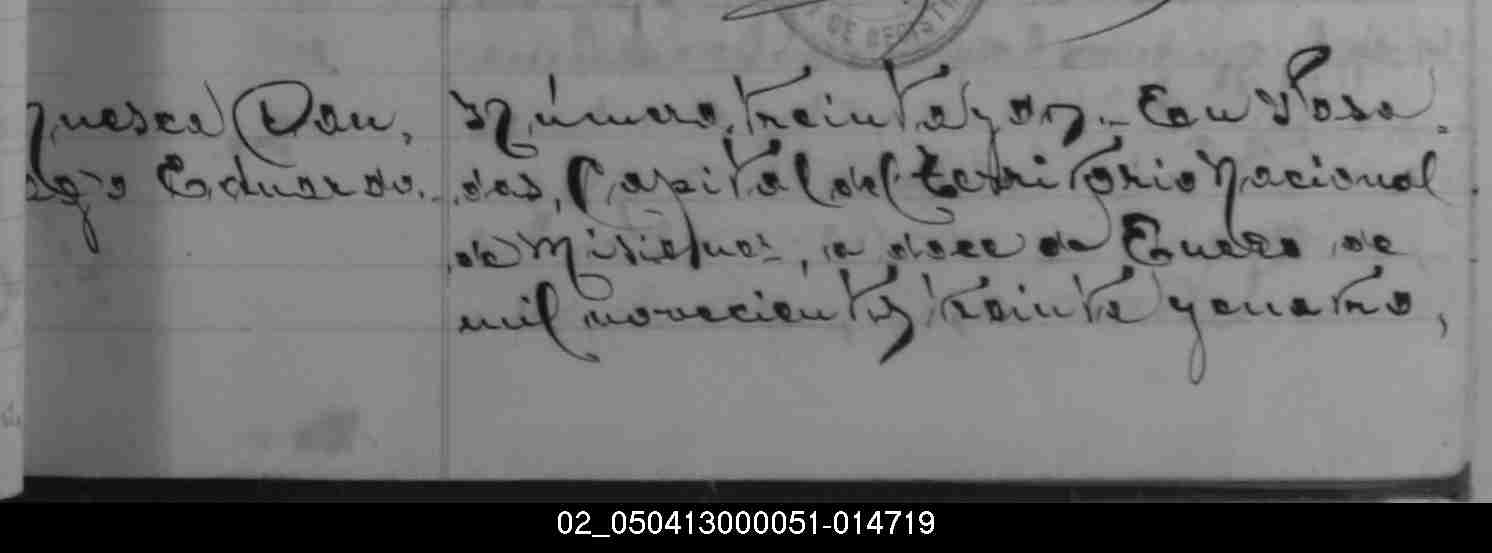 DE REGISTR
Huesca Dan,
Eduardo.
Número treinta y dos.- En Posa
das, Capital del territorio Nacional
de Misiones, a doce de Enero de
mil novecientos treinta y cuatro,
02_050413000051-014719